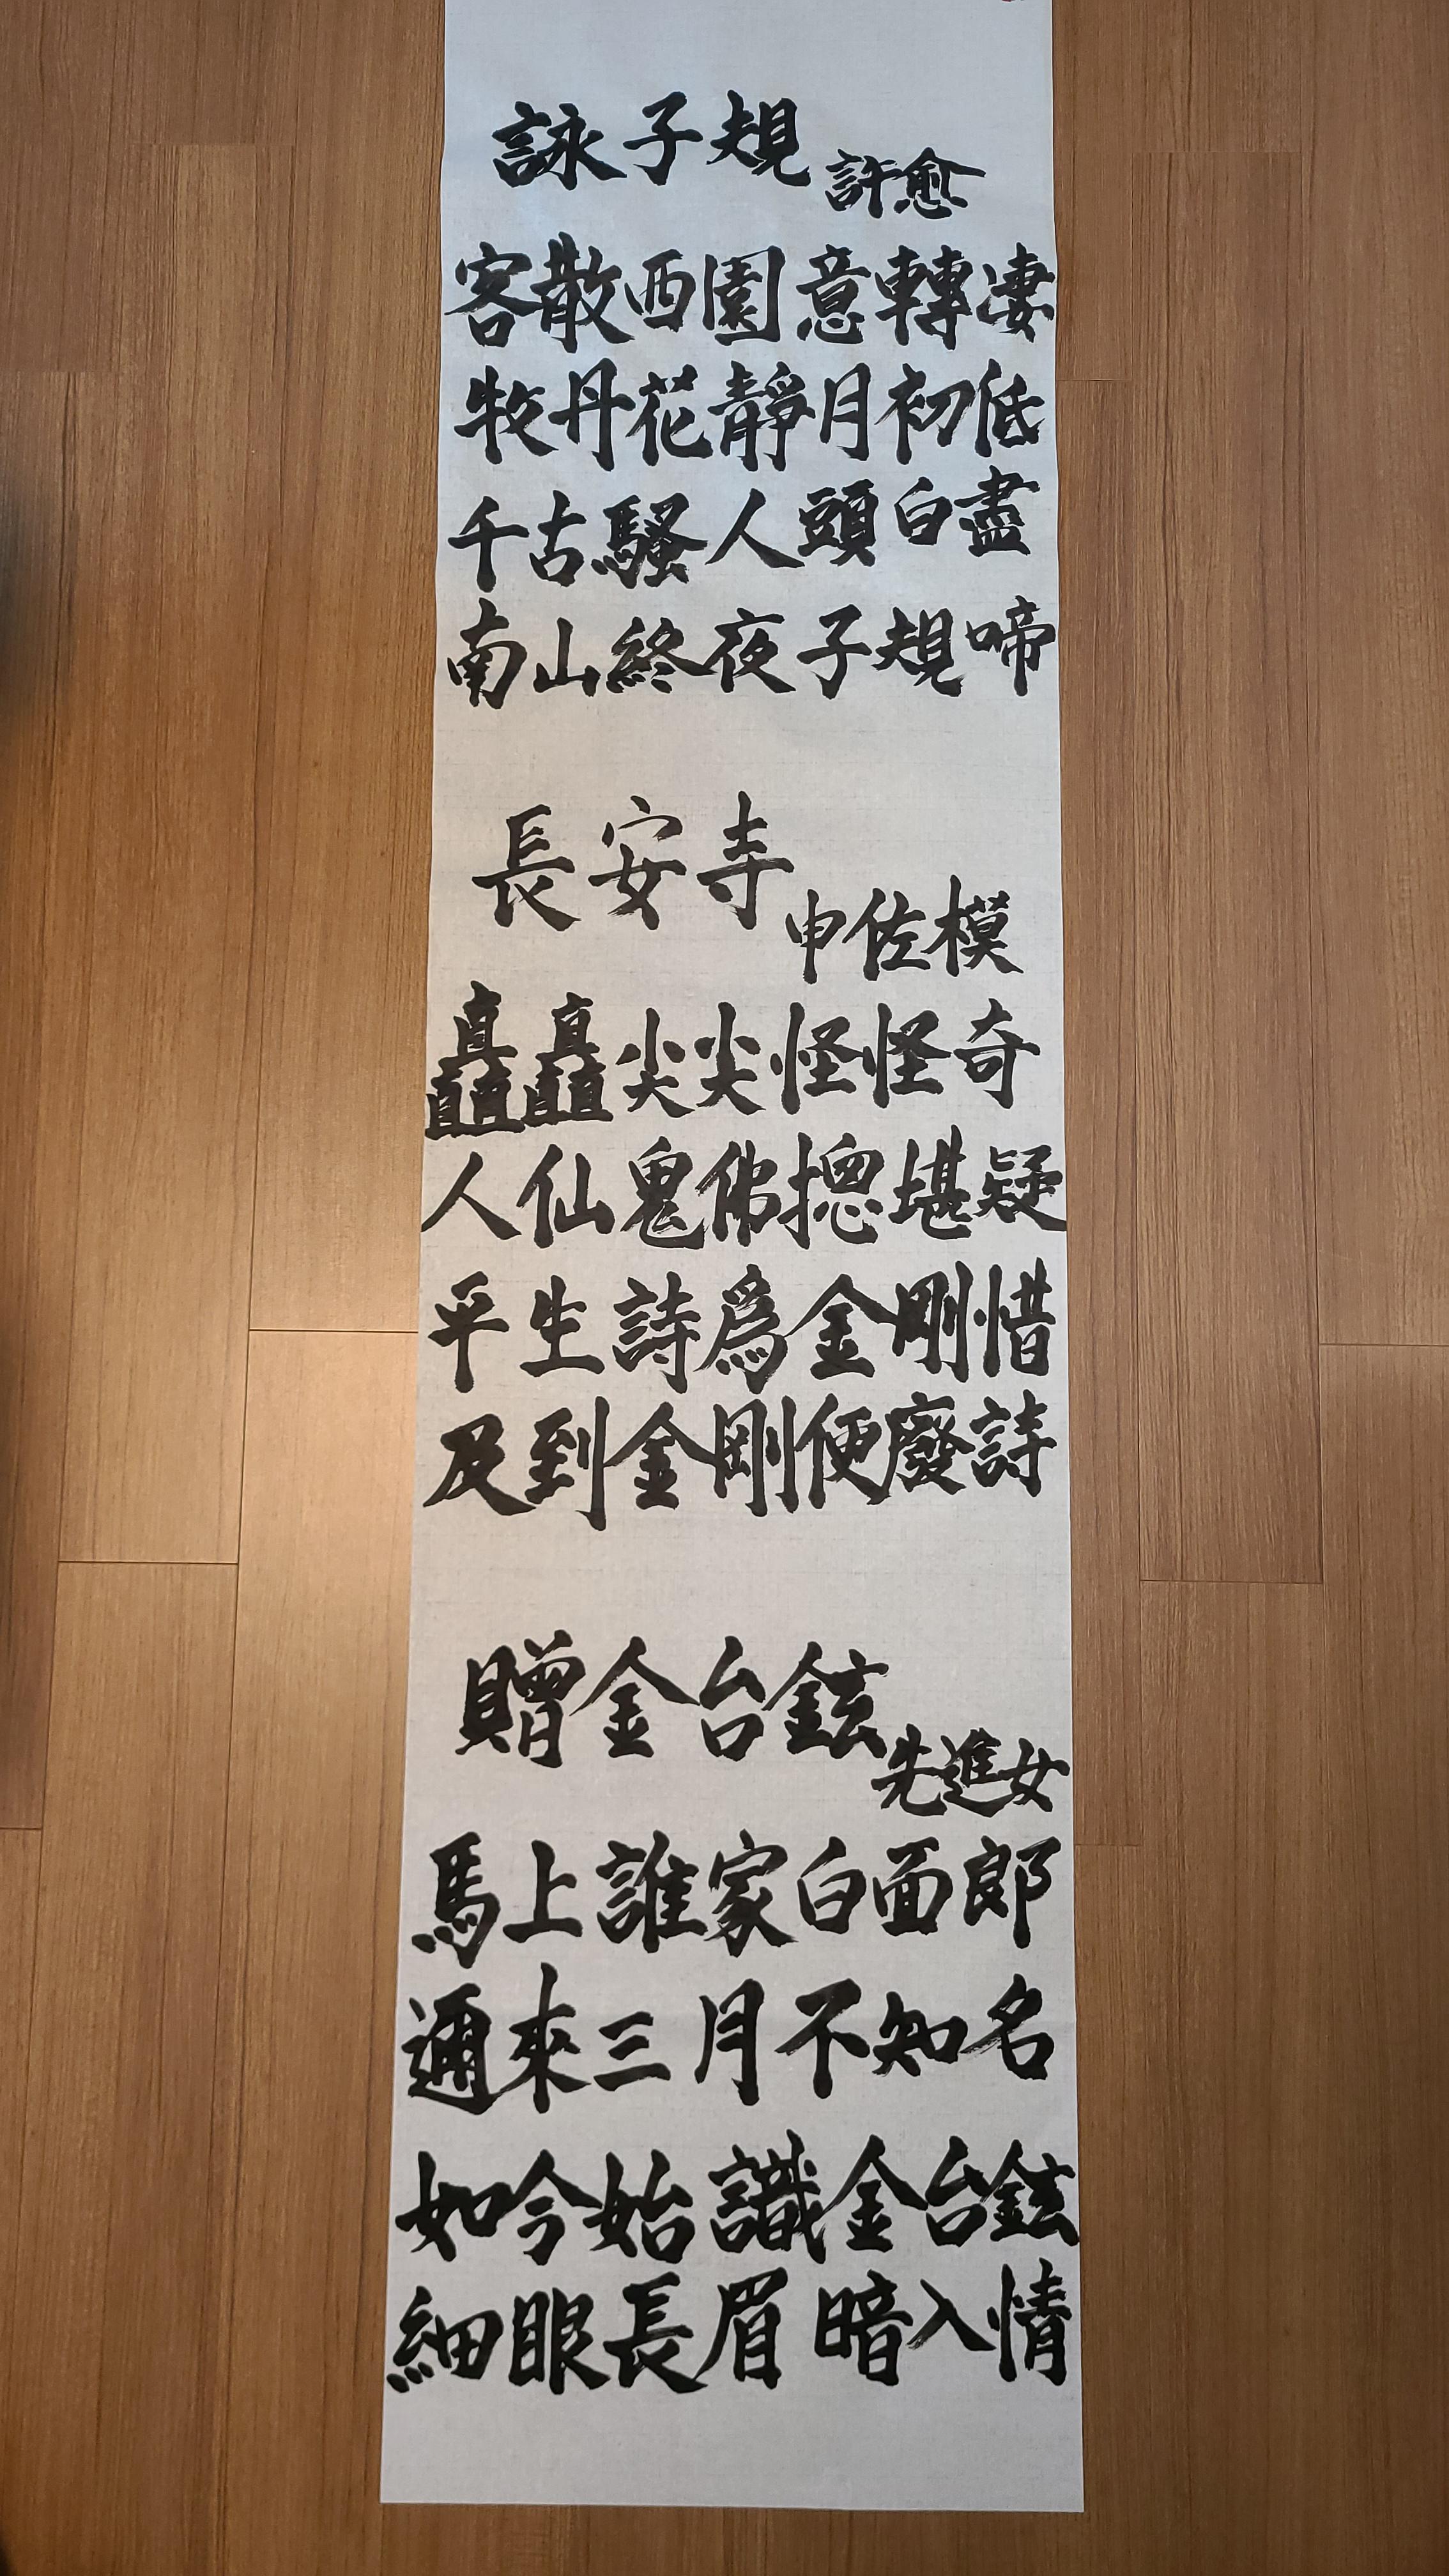 詠子規 許愈
客散西園意轉凄
牧丹花靜月初低
千古騷人頭白盡
南山終夜子規啼
長安寺 申佐模
矗矗尖尖怪怪奇
人仙鬼佛摠堪疑
平生詩爲金剛惜
及到金剛便廢詩
贈金台鉉 先進女
馬上誰家白面郎
邇來三月不知名
如今始識金台鉉
細眼長眉暗入情